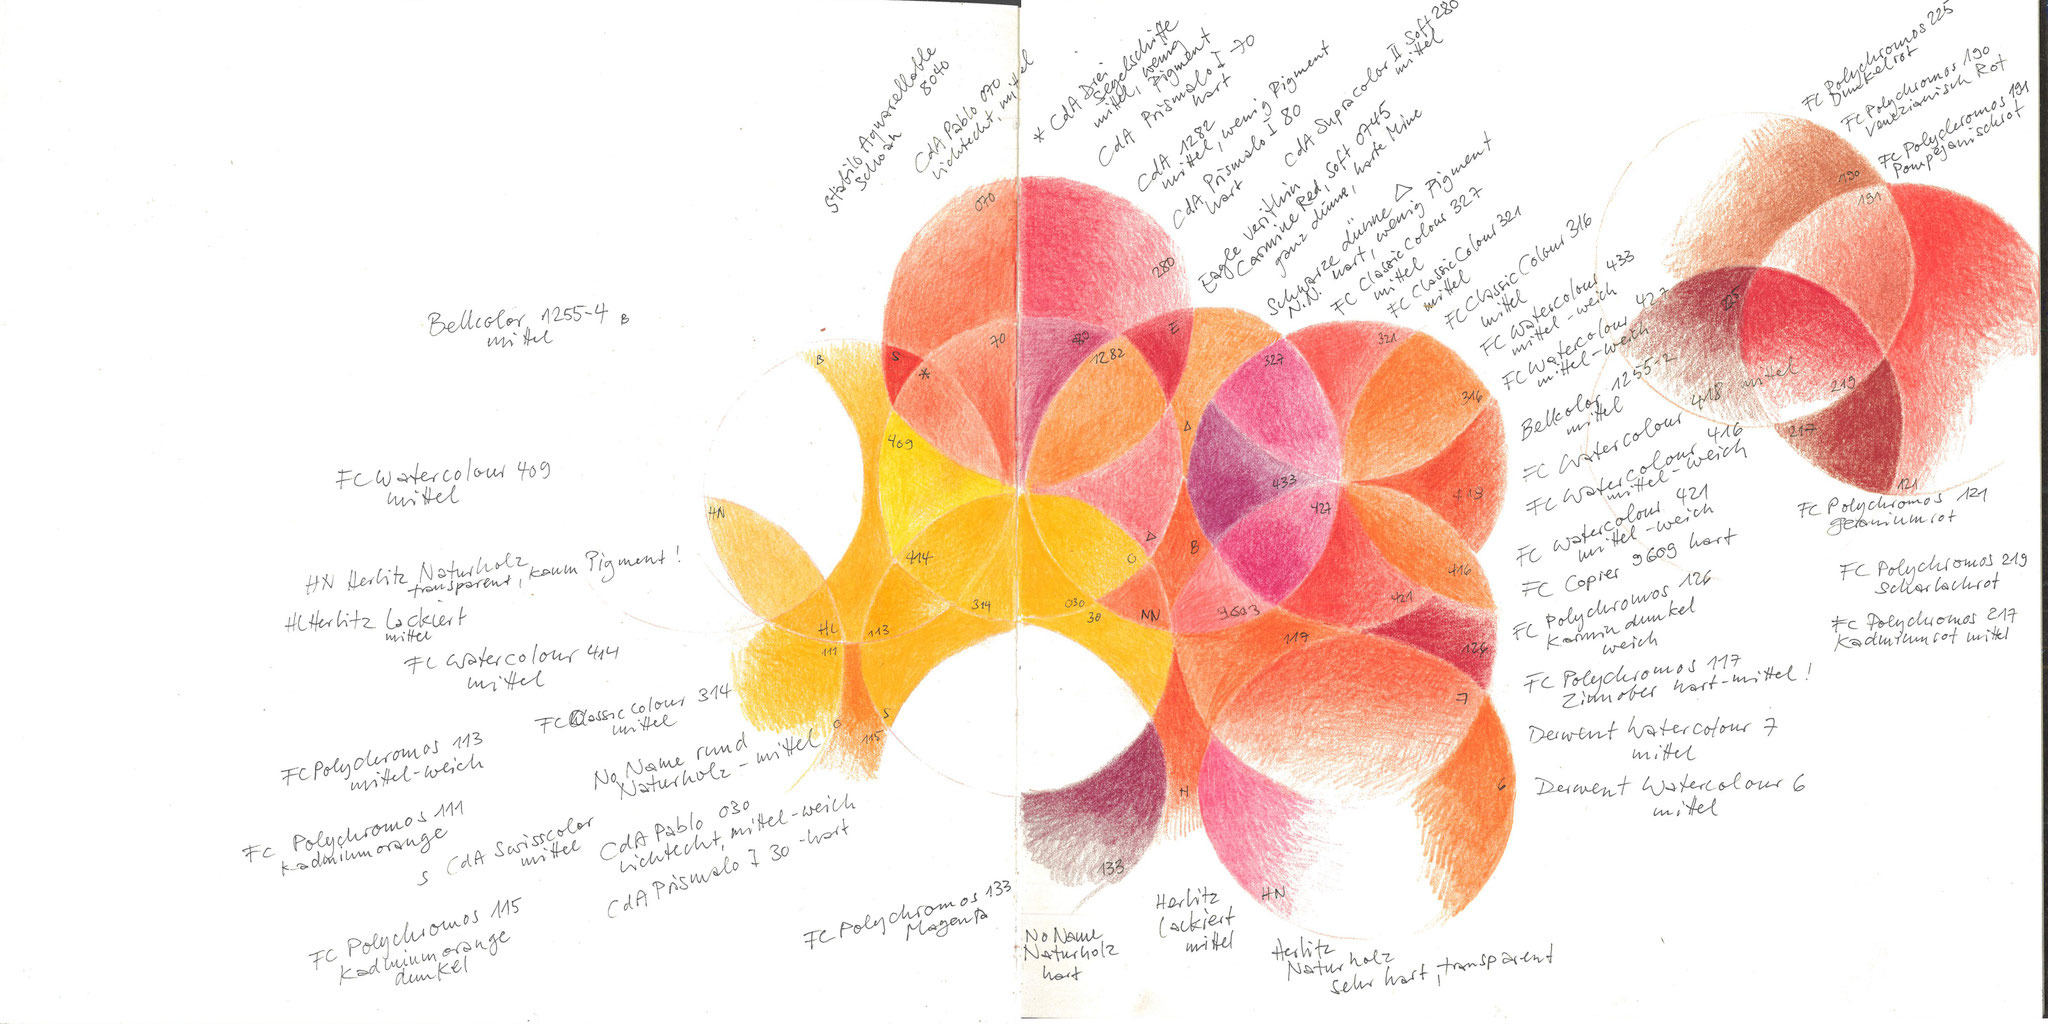 Stabilo Aquarellable
8040
Schwan
CdA Pablo 070
lichtecht, mittel
* CdA Drei
Segelschiffe
mittel, wenig
Pigment
CdA Prismalo I -70
hart
CdA 1282
mittel, wenig Pigment
CdA Prismalo I 80
hart
CdA Supracolor II Soft 280
mittel
Eagle Verithin
Carmine Red, Soft 0745
ganz dünne, harte Mine
Schwarze dünne △
N.N. hart, wenig Pigment
FC Classic Colour 327
mittel
FC Classic Colour 321
mittel
FC Classic Colour 316
mittel
FC Watercolour 433
mittel-weich
FC Watercolour 427
mittel-weich
Bellcolor 1255-2
mittel
FC Watercolour 418 mittel
FC Watercolour 416
mittel-weich
FC Watercolour 421
mittel-weich
FC Copier 9609 hart
FC Polychromos 126
Karmin dunkel
weich
FC Polychromos 117
Zinnober hart-mittel!
Derwent Watercolour 7
mittel
Derwent Watercolour 6
mittel
FC Polychromos 225
Dunkelrot
FC Polychromos 190
Venezianisch Rot
FC Polychromos 191
Pompejanischrot
FC Polychromos 121
geraniumrot
FC Polychromos 219
Scharlachrot
FC Polychromos 217
Kadmiumrot mittel
Bellcolor 1255-4 B
mittel
FC Watercolour 409
mittel
HN Herlitz Naturholz
transparent, kaum Pigment!
HL Herlitz Lackiert
mittel
FC Watercolour 414
mittel
FC Classic Colour 314
mittel
FC Polychromos 113
mittel-weich
No Name rund
Naturholz - mittel
FC Polychromos 111
Kadmiumorange
S CdA Swisscolor
mittel
CdA Pablo 030
Lichtecht, mittel-weich
CdA Prismalo I 30 -hart
FC Polychromos 115
Kadmiumorange
dunkel
FC Polychromos 133
Magenta
No Name
Naturholz
hart
Herlitz
Lackiert
mittel
Herlitz
Naturholz
sehr hart, transparent
070
280
B
S
*
70
80
1282
E
327
321
316
409
△
433
427
418
HN
414
△
O
B
416
HL
113
314
030
30
NN
9603
421
111
117
126
O
S
115
7
H
6
133
HN
190
191
225
219
217
121